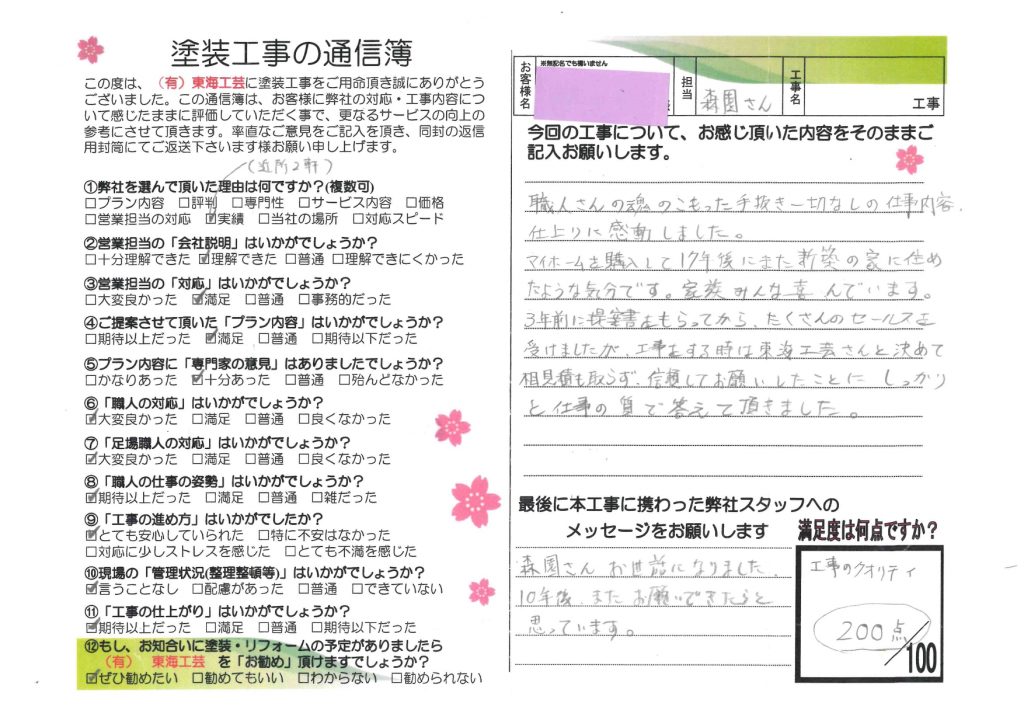 塗装工事の通信簿
この度は、（有）東海工芸に塗装工事をご用命頂き誠にありがとう
ございました。この通信簿は、お客様に弊社の対応・工事内容につ
いて感じたままに評価していただく事で、更なるサービスの向上の
参考にさせて頂きます。率直なご意見をご記入を頂き、同封の返信
用封筒にてご返送下さいます様お願い申し上げます。
(近所2軒)
①弊社を選んで頂いた理由は何ですか？(複数可)
□プラン内容 □評判 □専門性 □サービス内容 □価格
□営業担当の対応 ☑実績 □当社の場所 □対応スピード
②営業担当の「会社説明」はいかがでしょうか？
□十分理解できた ☑理解できた □普通 □理解できにくかった
③営業担当の「対応」はいかがでしょうか？
□大変良かった ☑満足 □普通 □事務的だった
④ご提案させて頂いた「プラン内容」はいかがでしょうか？
□期待以上だった ☑満足 □普通 □期待以下だった
⑤プラン内容に「専門家の意見」はありましたでしょうか？
□かなりあった ☑十分あった □普通 □殆んどなかった
⑥「職人の対応」はいかがでしょうか？
☑大変良かった □満足 □普通 □良くなかった
⑦「足場職人の対応」はいかがでしょうか？
☑大変良かった □満足 □普通 □良くなかった
⑧「職人の仕事の姿勢」はいかがでしょうか？
☑期待以上だった □満足 □普通 □雑だった
⑨「工事の進め方」はいかがでしたか？
☑とても安心していられた □特に不安はなかった
□対応に少しストレスを感じた □とても不満を感じた
⑩現場の「管理状況(整理整頓等)」はいかがでしょうか？
☑言うことなし □配慮があった □普通 □できていない
⑪「工事の仕上がり」はいかがでしょうか？
☑期待以上だった □満足 □普通 □期待以下だった
⑫もし、お知合いに塗装・リフォームの予定がありましたら
（有） 東海工芸 を「お勧め」頂けますでしょうか？
☑ぜひ勧めたい □勧めてもいい □わからない □勧められない
お客様名 ※無記名でも構いません 担当 森園さん 工事名 工事
今回の工事について、お感じ頂いた内容をそのままご
記入お願いします。
職人さんの魂のこもった手抜き一切なしの仕事内容、
仕上りに感動しました。
マイホームを購入して17年後にまた新築の家に住め
たような気分です。家族みんな喜んでいます。
3年前に提案書をもらってから、たくさんのセールスを
受けましたが、工事をする時は東海工芸さんと決めて
相見積も取らず、信頼してお願いしたことに しっかり
と仕事の質で答えて頂きました。
最後に本工事に携わった弊社スタッフへの
メッセージをお願いします
森園さん お世話になりました。
10年後、またお願いできたらと
思っています。
満足度は何点ですか？
工事のクオリティ
200点
/100